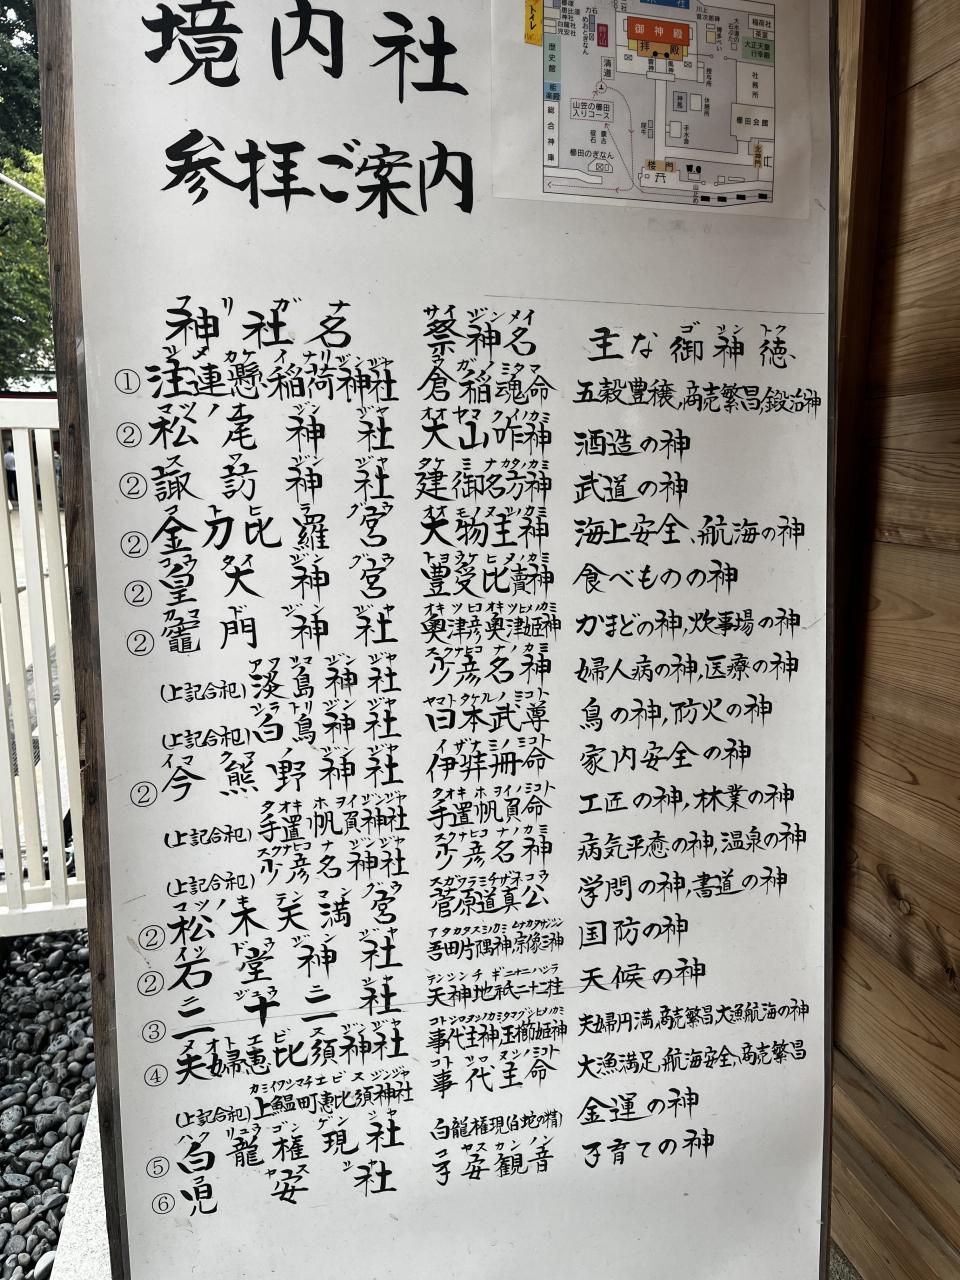 境内社
参拝ご案内
トイレ
歴史館
能楽殿
総合神庫
御神殿
拝殿
清道
山笠の櫛田入りコース
櫛田のぎなん
楼門
社務所
櫛田会館
大正天皇行幸殿
授与所
神馬
休憩所
手水舎
力石
山止め
神社名 祭神名 主な御神徳、
①注連懸稲荷神社 倉稲魂命 五穀豊穣、商売繁昌、鍛冶神
②松尾神社 大山咋神 酒造の神
②諏訪神社 建御名方神 武道の神
②金刀比羅宮 大物主神 海上安全、航海の神
②皇大神宮 豊受比賣神 食べものの神
②竈門神社 奥津彦奥津姫神 かまどの神,炊事場の神
(上記合祀)淡島神社 少彦名神 婦人病の神,医療の神
(上記合祀)白鳥神社 日本武尊 鳥の神,防火の神
②今熊野神社 伊弉冊命 家内安全の神
(上記合祀)手置帆負神社 手置帆負命 工匠の神,林業の神
(上記合祀)少彦名神社 少彦名神 病気平癒の神,温泉の神
②松末天満宮 菅原道真公 学問の神,書道の神
②石堂神社 吾田片隅神,宗像三神 国防の神
③二十二社 天神地祇二十二柱 天候の神
④夫婦恵比須神社 事代主神,玉櫛姫神 夫婦円満,商売繁昌,大漁航海の神
(上記合祀)上鰮町恵比須神社 事代主命 大漁満足,航海安全,商売繁昌
⑤白龍権現社 白龍権現(白蛇の精) 金運の神
⑥児安社 子安観音 子育ての神